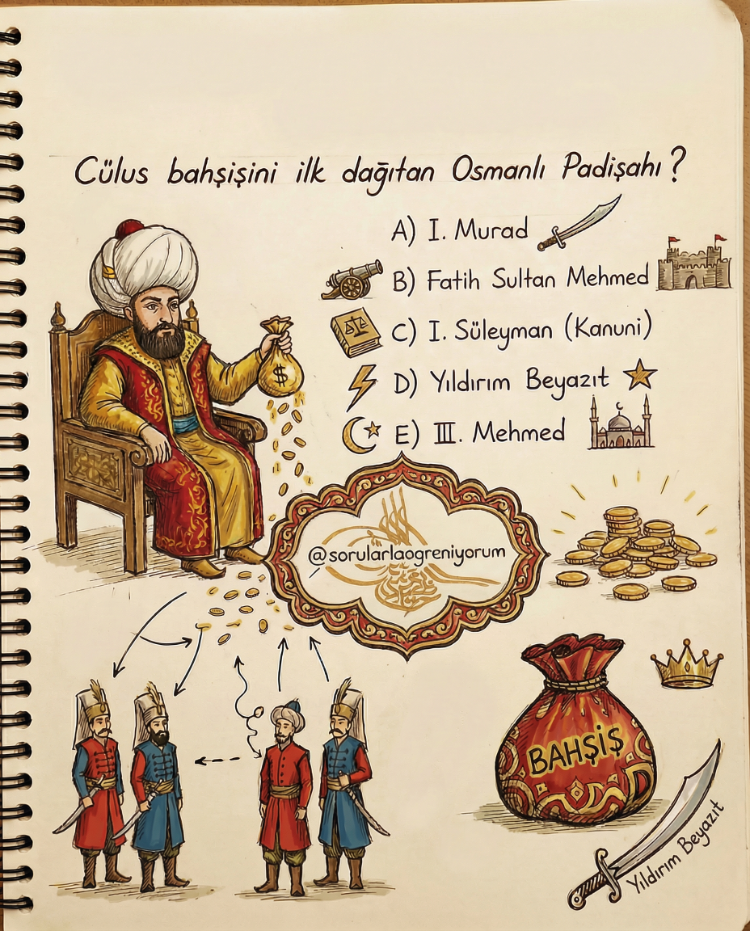 Cülus bahşişini ilk dağıtan Osmanlı Padişahı?
A) I. Murad
B) Fatih Sultan Mehmed
C) I. Süleyman (Kanuni)
D) Yıldırım Beyazıt
E) III. Mehmed
$
@sorularlaogreniyorum
BAHŞİŞ
Yıldırım Beyazıt